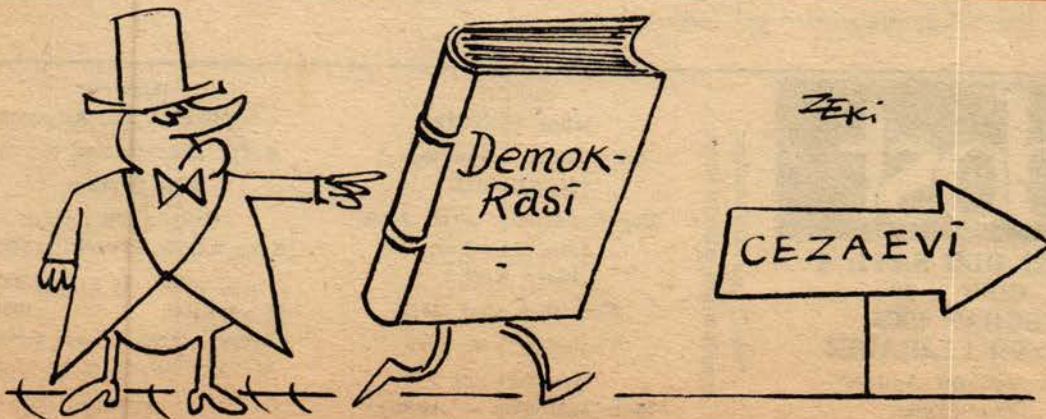 Demok-
Rasi
ZEKi
CEZAEVİ